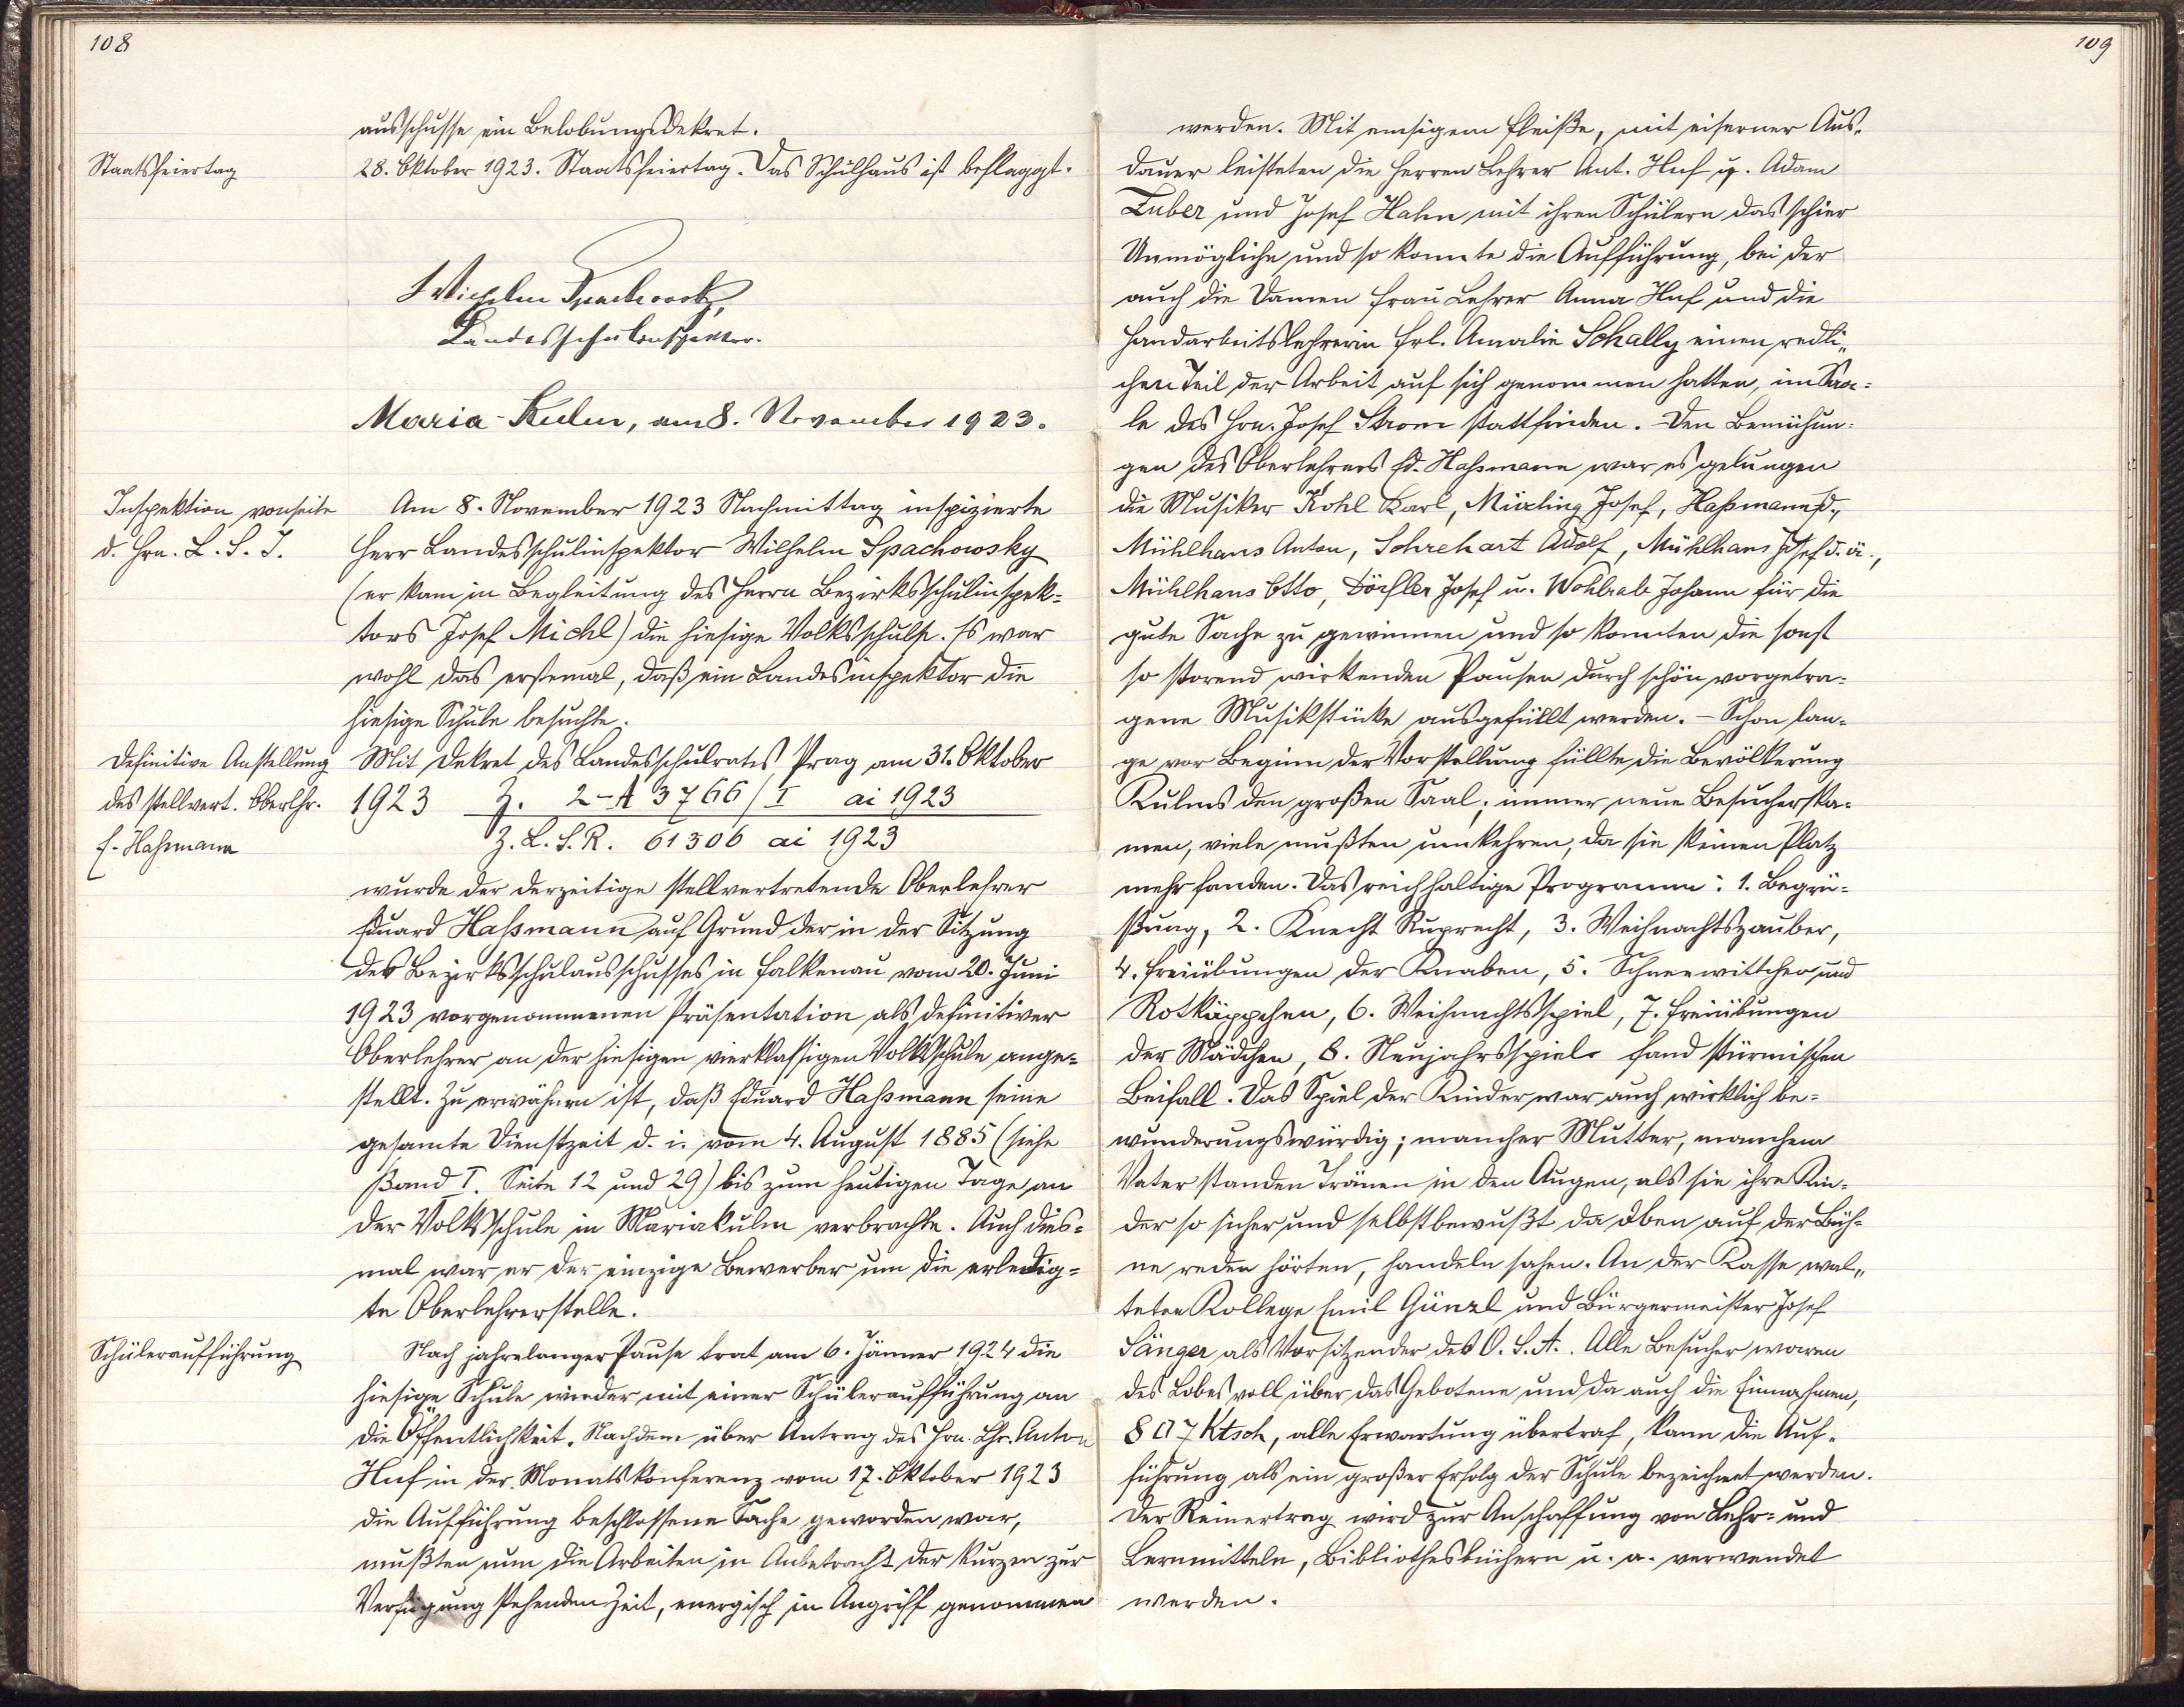 108
ausschusse ein Belobungsdekret.
Staatsfeiertag
28. Oktober 1923. Staatsfeiertag. Das Schulhaus ist beflaggt.
Wilhelm Spachowsky,
Landesschulinspektor.
Maria-Kulm, am 8. November 1923.
Inspektion vonseite
d. Hrn. L. S. I.
Am 8. November 1923 Nachmittag inspizierte
Herr Landesschulinspektor Wilhelm Spachowsky
(er kam in Begleitung des Herrn Bezirksschulinspek-
tors Josef Michl) die hiesige Volksschule. Es war
wohl das erstemal, daß ein Landesinspektor die
hiesige Schule besuchte.
Definitive Anstellung
des stellvert. Oberlhr.
E. Haßmann
Mit Dekret des Landesschulrates Prag am 31. Oktober
1923 Z. 2-A 3766/I ai 1923
Z. L. S. R. 61306 ai 1923
wurde der derzeitige stellvertretende Oberlehrer
Eduard Haßmann auf Grund der in der Sitzung
des Bezirksschulausschusses in Falkenau vom 20. Juni
1923 vorgenommenen Präsentation als definitiver
Oberlehrer an der hiesigen vierklassigen Volksschule ange-
stellt. Zu erwähnen ist, daß Eduard Haßmann seine
gesamte Dienstzeit d. i. vom 4. August 1885 (siehe
Band I. Seite 12 und 29) bis zum heutigen Tage an
der Volksschule in Mariakulm verbrachte. Auch dies-
mal war er der einzige Bewerber um die erledig-
te Oberlehrerstelle.
Schüleraufführung
Nach jahrelanger Pause trat am 6. Jänner 1924 die
hiesige Schule wieder mit einer Schüleraufführung an
die Öffentlichkeit. Nachdem über Antrag des Hrn. Lhr. Anton
Huf in der Monatskonferenz vom 17. Oktober 1923
die Aufführung beschlossene Sache geworden war,
mußten nun die Arbeiten in Anbetracht der kurzen zur
Verfügung stehenden Zeit, energisch in Angriff genommen
109
werden. Mit emsigem Fleiße, mit eiserner Aus-
dauer leisteten die Herren Lehrer Ant. Huf u. Adam
Zuber und Josef Hahn mit ihren Schülern das schier
Unmögliche und so konnte die Aufführung, bei der
auch die Damen Frau Lehrer Anna Huf und die
Handarbeitslehrerin Frl. Amalie Schally einen redli-
chen Teil der Arbeit auf sich genommen hatten, im Saa-
le des Hrn. Josef Strom stattfinden. Den Bemühun-
gen des Oberlehrers Ed. Haßmann war es gelungen
die Musiker Kohl Karl, Mirling Josef, Haßmann Ed.,
Mühlhans Anton, Schrehart Adolf, Mühlhans Josef d. ä.,
Mühlhans Otto, Dörfler Josef u. Wohlrab Johann für die
gute Sache zu gewinnen und so konnten die sonst
so störend wirkenden Pausen durch schön vorgetra-
gene Musikstücke ausgefüllt werden. – Schon lan-
ge vor Beginn der Vorstellung füllte die Bevölkerung
Kulms den großen Saal; immer neue Besucher ka-
men, viele mußten umkehren, da sie keinen Platz
mehr fanden. Das reichhaltige Programm: 1. Begrü-
ßung, 2. Knecht Ruprecht, 3. Weihnachtszauber,
4. Freiübungen der Knaben, 5. Schneewittchen und
Rotkäppchen, 6. Weihnachtsspiel, 7. Freiübungen
der Mädchen, 8. Neujahrsspiele fand stürmischen
Beifall. Das Spiel der Kinder war auch wirklich be-
wunderungswürdig; mancher Mutter, manchem
Vater standen Tränen in den Augen, als sie ihre Kin-
der so sicher und selbstbewußt da oben auf der Büh-
ne reden hörten, handeln sahen. An der Kasse wal-
teten Kollege Emil Günzl und Bürgermeister Josef
Sänger als Vorsitzender des O. S. A.. Alle Besucher waren
des Lobes voll über das Gebotene und da auch die Einnahmen,
807 Ktsch, alle Erwartung übertraf, kann die Auf-
führung als ein großer Erfolg der Schule bezeichnet werden.
Der Reinertrag wird zur Anschaffung von Lehr- und
Lernmitteln, Bibliotheksbüchern u. a. verwendet
werden.